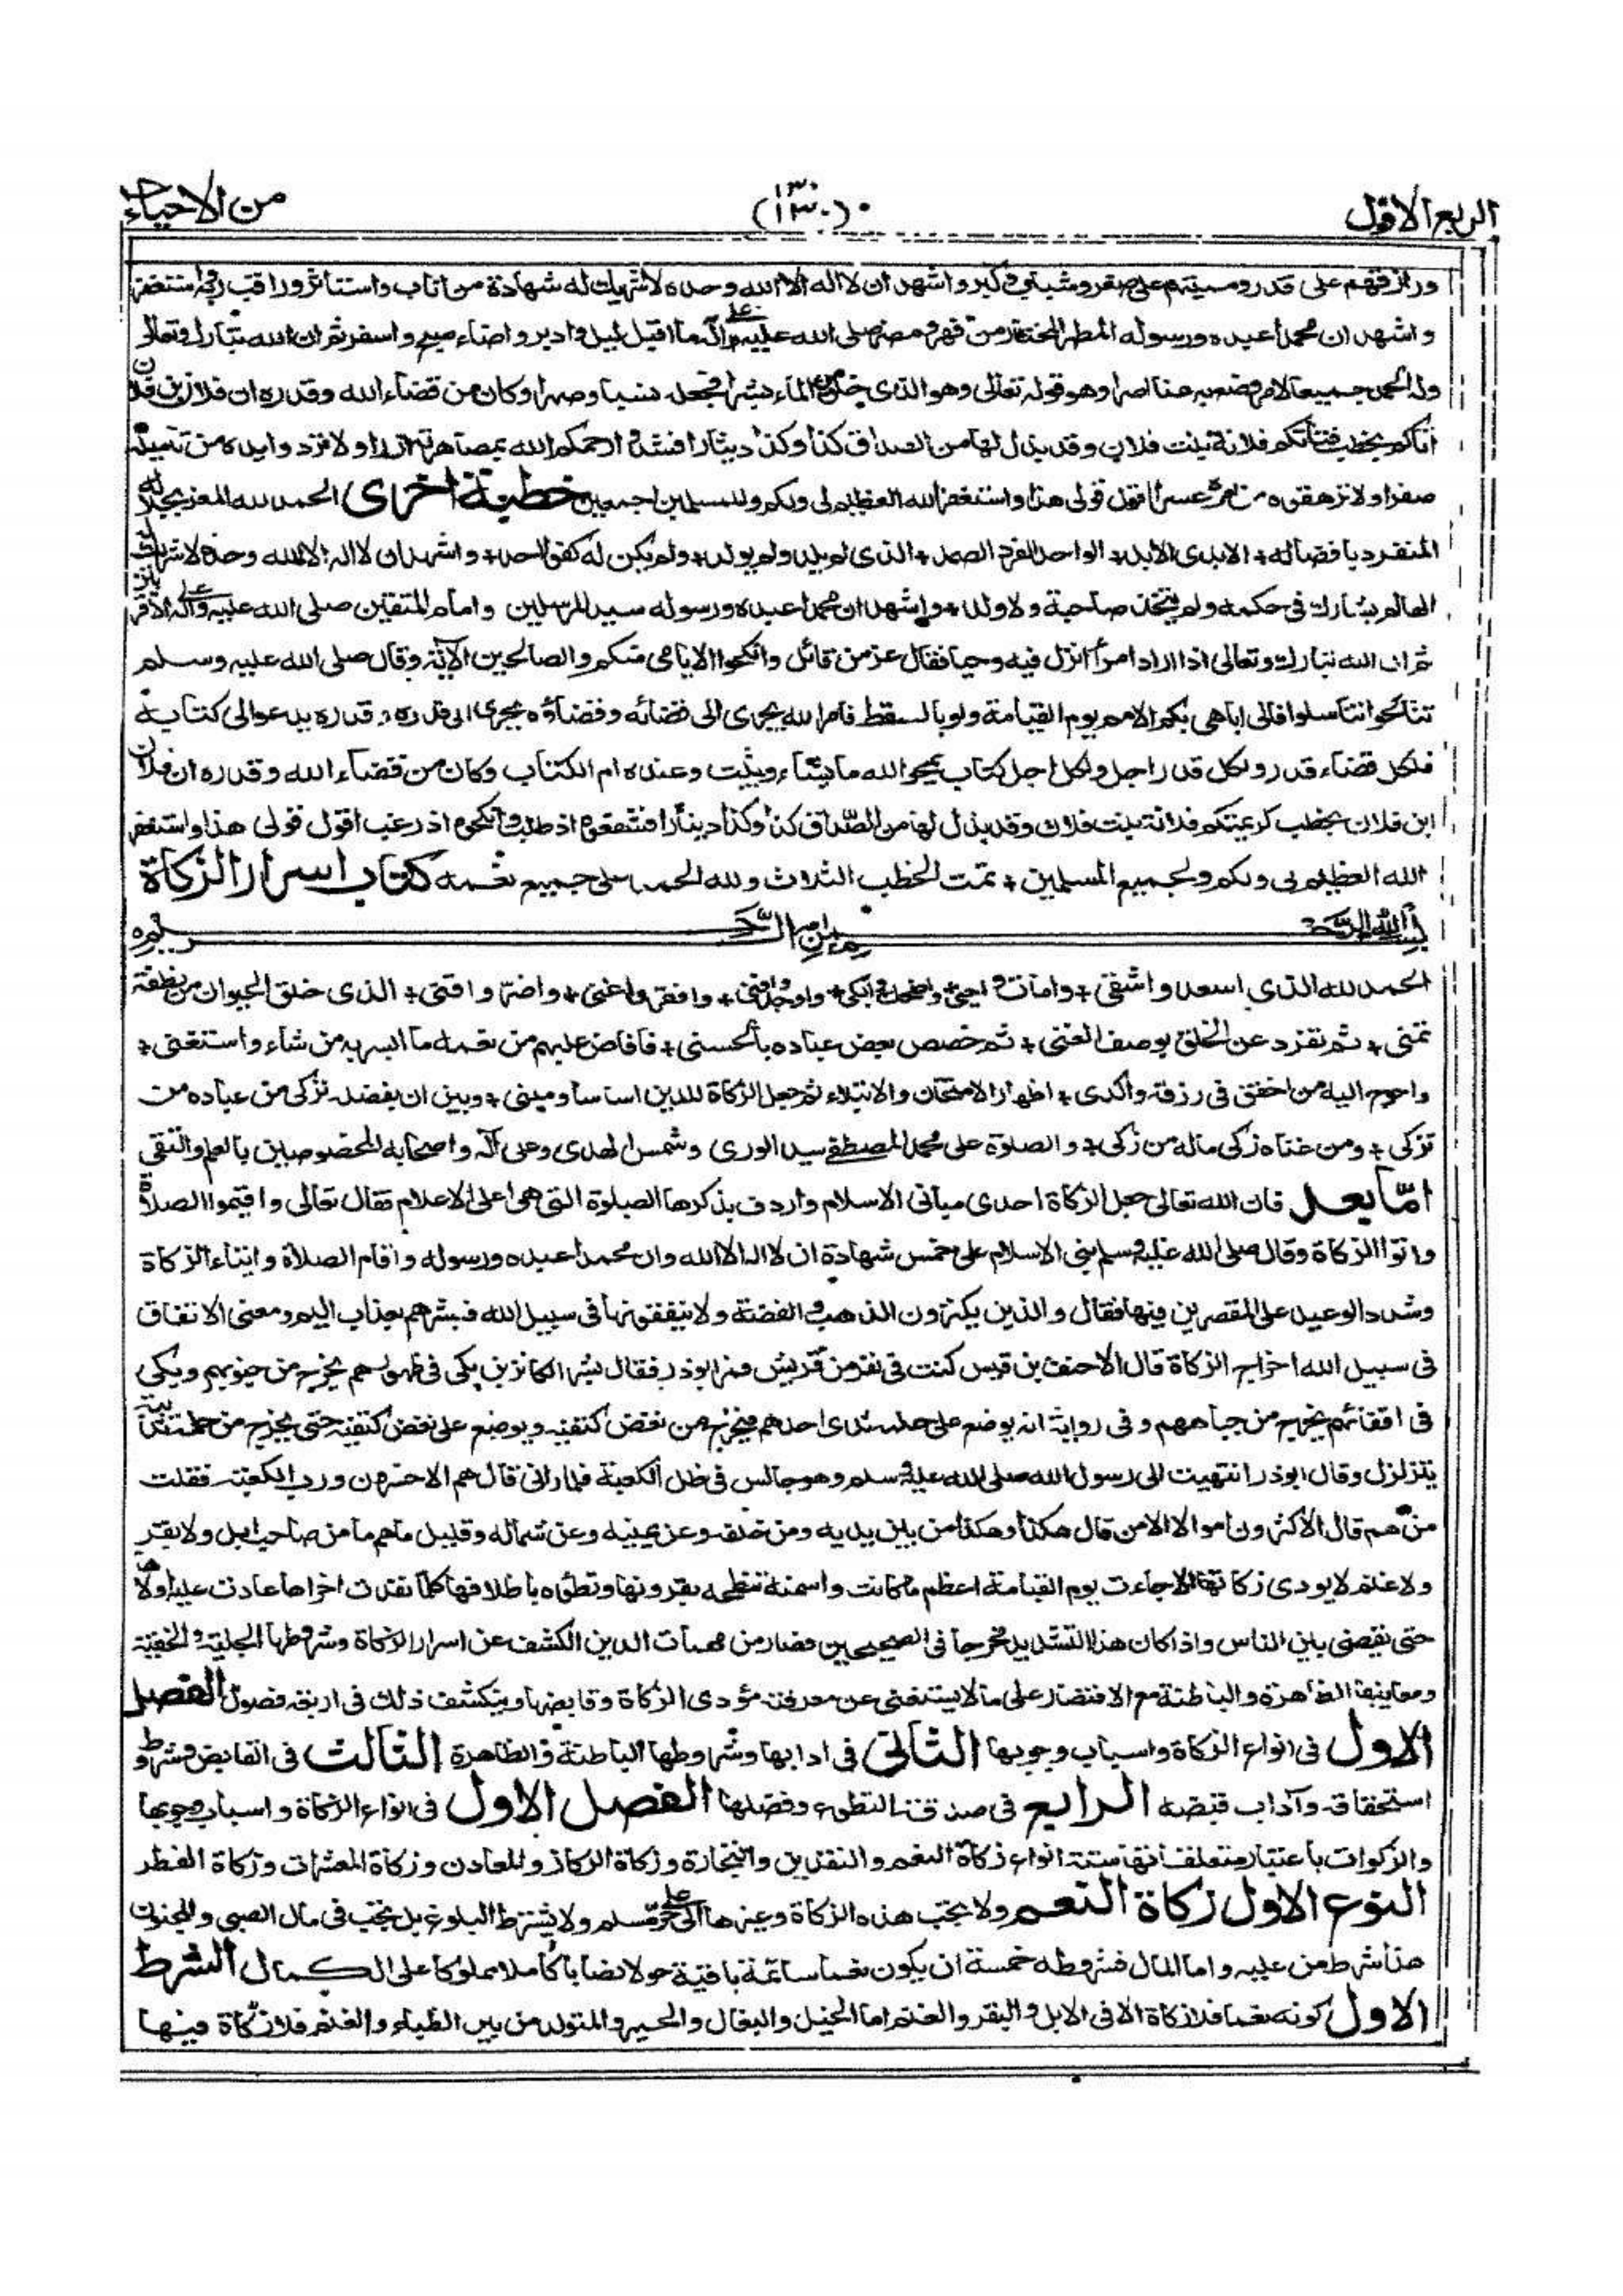 الربع الاول
(١٣٠)
من الاحياء
ورازقهم على قدر ومميتهم على صغر وشباب وكبر واشهد ان لا اله الا الله وحده لا شريك له شهادة من اناب واستأثر وراقب ربه واستغفر
واشهد ان محمدا عبده ورسوله المطهر المختار من فهر ومضر صلى الله عليه وعلى آله ما اقبل ليل وادبر واضاء صبح واسفر ثم ان الله تبارك وتعالى
وله الحمد جميعا لامر وهو قوله تعالى وهو الذى خلق من الماء بشرا فجعله نسبا وصهرا وكان من قضاء الله وقدره ان فلان بن فلان
أتاكم يخطب فتاتكم فلانة بنت فلان وقد بذل لها من الصداق كذا وكذا دينارا رحمكم الله بمصاهرته ولا فرد وايده من
صفرا ولا ترهقوه من امره عسرا اقول قولى هذا واستغفر الله العظيم لى ولكم وللمسلمين اجمعين خطبة اخرى الحمد لله المعز بجلاله
المنفرد بافضاله + الابدى الابد + الواحد الفرد الصمد + الذى لم يلد ولم يولد + ولم يكن له كفوا احد + واشهد ان لا اله الا الله وحده لا شريك له
العالم يشارك فى حكمه ولم يتخذ صاحبة ولا ولدا + واشهد ان محمدا عبده ورسوله سيد المرسلين وامام المتقين صلى الله عليه وعلى آله
ثم ان الله تبارك وتعالى اذا اراد امرا انزل فيه وحيا فقال عز من قائل وانكحوا الايامى منكم والصالحين الآية وقال صلى الله عليه وسلم
تناكحوا تناسلوا فانى اباهى بكم الامم يوم القيامة ولو بالسقط فامر الله يجرى الى قضائه وقضاؤه يجرى الى قدره وقدره يدعو الى كتابه
فلكل قضاء قدر ولكل قدر اجل ولكل اجل كتاب يمحو الله ما يشاء ويثبت وعنده ام الكتاب وكان من قضاء الله وقدره ان فلان
ابن فلان يخطب كريمتكم فلانة بنت فلان وقد بذل لها من الصداق كذا وكذا دينارا فشفعوه اذ طلب وانكحوه اذ رغب اقول قولى هذا واستغفر
الله العظيم لى ولكم ولجميع المسلمين + تمت الخطب الثلاث ولله الحمد على جميع نعمه كتاب اسرار الزكاة
بسم الله الرحمن الرحيم
الحمد لله الذى اسعد واشقى + وامات واحيى + واضحك وابكى + واوجد وافنى + وافقر واغنى + واضر واقنى + الذى خلق الحيوان من نطفة
تمنى + ثم تفرد عن الخلق بوصف الغنى + ثم خصص بعض عباده بالحسنى + فافاض عليهم من نعمه ما ايسر به من شاء واستغنى +
واحوج اليه من اخفق فى رزقه واكدى + اظهارا للامتحان والابتلاء ثم جعل الزكاة للدين اساسا ومبنى + وبين ان بفضله تزكى من عباده من
تزكى + ومن غناه زكى ماله من زكى + والصلوة على محمد المصطفى سيد الورى وشمس الهدى وعلى آله واصحابه المخصوصين بالعلم والتقى
امّا بعد فان الله تعالى جعل الزكاة احدى مبانى الاسلام واردف بذكرها الصلوة التى هى اعلى الاعلام فقال تعالى واقيموا الصلاة
واتوا الزكاة وقال صلى الله عليه وسلم بنى الاسلام على خمس شهادة ان لا اله الا الله وان محمدا عبده ورسوله واقام الصلاة وايتاء الزكاة
وشدد الوعيد على المقصرين فيها فقال والذين يكنزون الذهب والفضة ولا ينفقونها فى سبيل الله فبشرهم بعذاب اليم ومعنى الانفاق
فى سبيل الله اخراج الزكاة قال الاحنف بن قيس كنت فى نفر من قريش فمر ابوذر فقال بشر الكانزين بكى فى ظهورهم يخرج من جنوبهم وبكى
فى اقفائهم يخرج من جباههم وفى رواية انه يوضع على حلمة ثدى احدهم فيخرج من نغض كتفيه ويوضع على نغض كتفيه حتى يخرج من حلمة ثدييه
يتزلزل وقال ابوذر انتهيت الى رسول الله صلى الله عليه وسلم وهو جالس فى ظل الكعبة فلما رانى قال هم الاخسرون ورب الكعبة فقلت
من هم قال الاكثرون اموالا الا من قال هكذا وهكذا من بين يديه ومن خلفه وعن يمينه وعن شماله وقليل ما هم ما من صاحب ابل ولا بقر
ولا غنم لا يودى زكاتها الا جاءت يوم القيامة اعظم ما كانت واسمنه تنطحه بقرونها وتطؤه باظلافها كلما نفدت اخراها عادت عليه اولاها
حتى يقضى بين الناس واذا كان هذا التشديد مخرجا فى الصحيحين فصار من مهمات الدين الكشف عن اسرار الزكاة وشروطها الجلية والخفية
ومعانيها الظاهرة والباطنة مع الاقتصار على ما لا يستغنى عن معرفته مؤدى الزكاة وقابضها وينكشف ذلك فى اربعة فصول الفصل
الاول فى انواع الزكاة واسباب وجوبها الثانى فى ادابها وشروطها الباطنة والظاهرة الثالث فى القابض وشروط
استحقاقه وآداب قبضه الرابع فى صدقة التطوع وفضلها الفصل الاول فى انواع الزكاة واسباب وجوبها
والزكوات باعتبار متعلقاتها ستة انواع زكاة النعم والنقدين والتجارة وزكاة الركاز والمعادن وزكاة المعشرات وزكاة الفطر
النوع الاول زكاة النعم ولا يجب هذه الزكاة وغيرها الا على حر مسلم ولا يشترط البلوغ بل يجب فى مال الصبى والمجنون
هذا شرط من عليه واما المال فشروطه خمسة ان يكون نعما سائمة باقية حولا نصابا كاملا مملوكا على الكمال الشرط
الاول كونه نعما فلا زكاة الا فى الابل والبقر والغنم اما الخيل والبغال والحمير والمتولد من بين الظباء والغنم فلا زكاة فيها